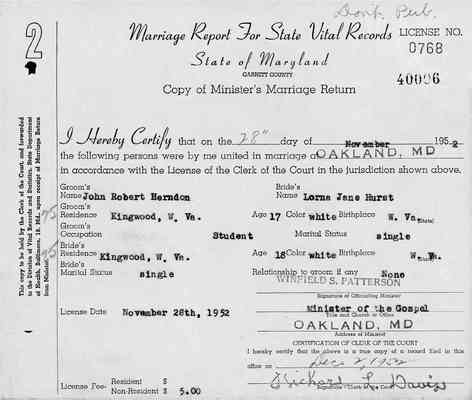 Don't Pub.
2
Marriage Report For State Vital Records LICENSE NO.
0768
State of Maryland
GARRETT COUNTY
40096
Copy of Minister's Marriage Return
This copy to be held by Clerk of the Court, and forwarded
to the Division of Vital Records and Statistics, State Department
of Health, Baltimore, 18, Md., upon receipt of Marriage Return
from Minister.
I Hereby Certify that on the 28" day of November 1952
the following persons were by me united in marriage at OAKLAND, MD
in accordance with the License of the Clerk of the Court in the jurisdiction shown above.
Groom's Name John Robert Herndon Bride's Name Lorna Jane Hurst
Groom's Residence Kingwood, W. Va. Age 17 Color white Birthplace W. Va. (State)
Groom's Occupation Student Marital Status single
Bride's Residence Kingwood, W. Va. Age 18 Color white Birthplace W. Va. (State)
Bride's Marital Status single Relationship to groom if any None
WINFIELD S. PATTERSON
Signature of Officiating Minister
License Date November 28th, 1952 Minister of the Gospel
Title and Church or Office
OAKLAND, MD
Address of Minister
CERTIFICATION OF CLERK OF THE COURT
I hereby certify that the above is a true copy of a record filed in this
office on Dec 2, 1952
License Fee- Resident $
Non-Resident $ 5.00
Richard L. Davis
Signature